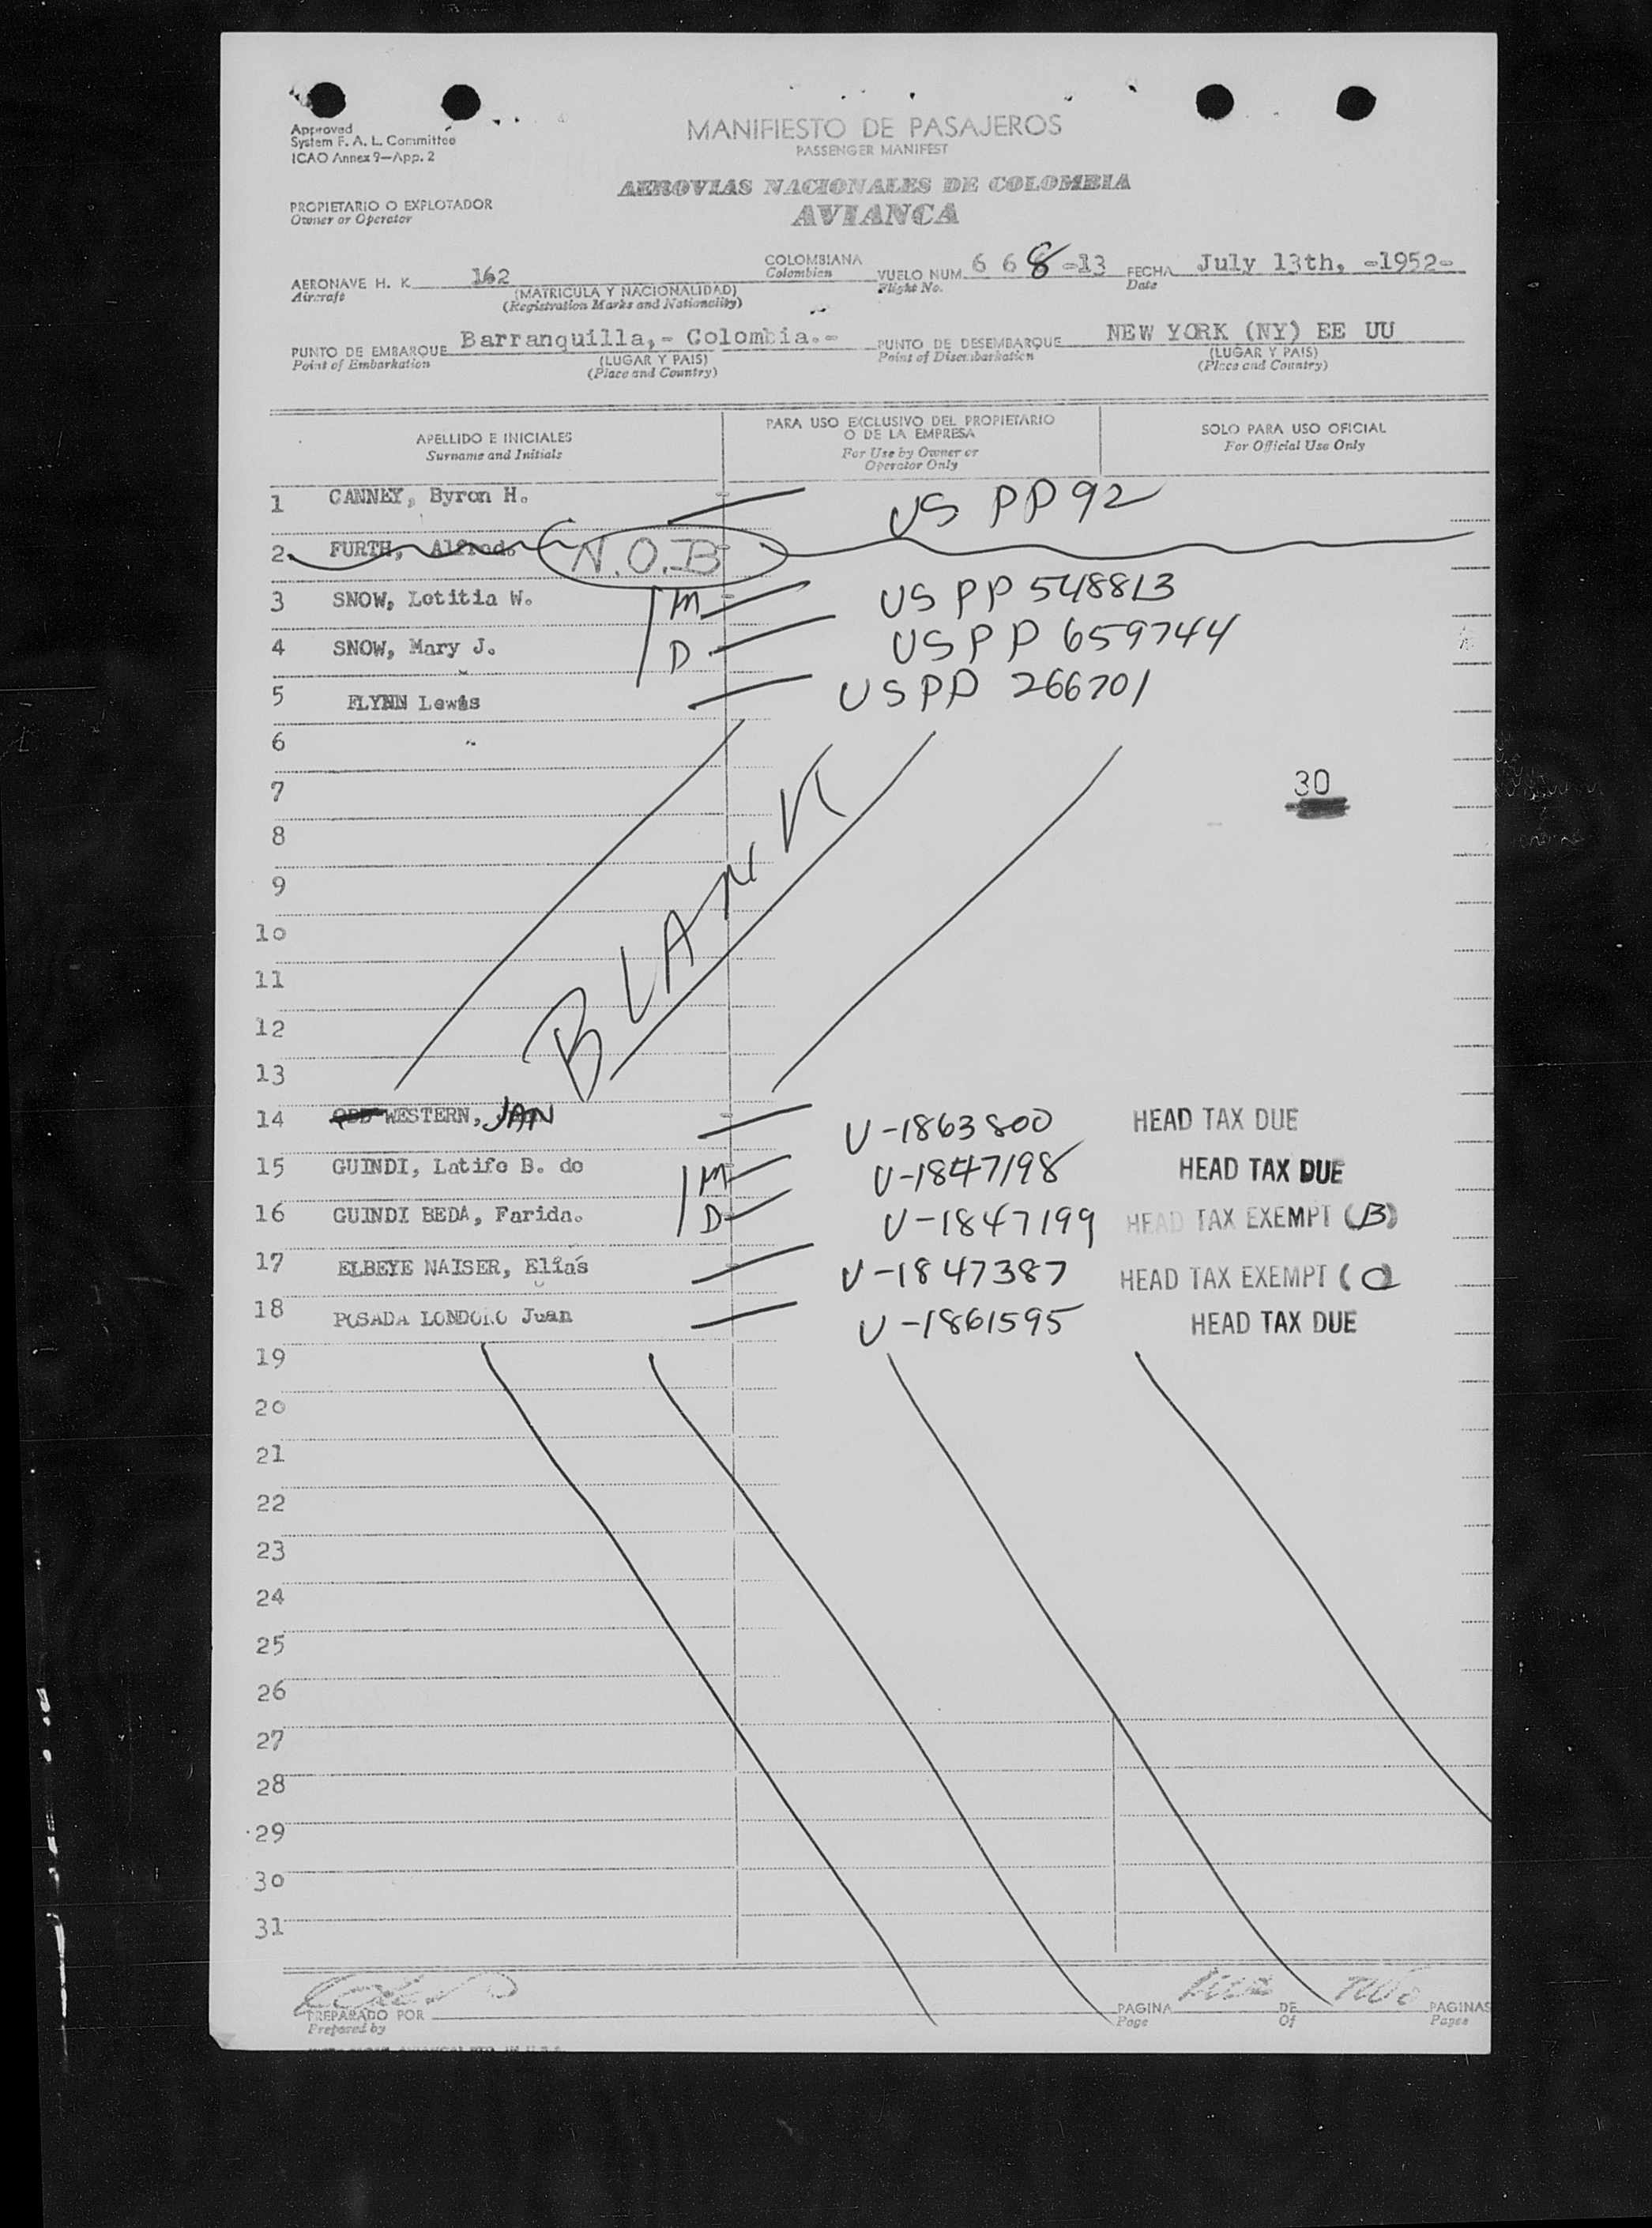 Approved
System F. A. L. Committee
ICAO Annex 9—App. 2
MANIFIESTO DE PASAJEROS
PASSENGER MANIFEST
AEROVIAS NACIONALES DE COLOMBIA
AVIANCA
PROPIETARIO O EXPLOTADOR
Owner or Operator
AERONAVE H. K. 162 COLOMBIANA VUELO NUM. 668-13 FECHA July 13th, -1952-
Aircraft (MATRICULA Y NACIONALIDAD) Colombian Flight No. Date
(Registration Marks and Nationality)
PUNTO DE EMBARQUE Barranquilla,- Colombia.- PUNTO DE DESEMBARQUE NEW YORK (NY) EE UU
Point of Embarkation (LUGAR Y PAIS) Point of Disembarkation (LUGAR Y PAIS)
(Place and Country) (Place and Country)
APELLIDO E INICIALES
Surname and Initials
PARA USO EXCLUSIVO DEL PROPIETARIO
O DE LA EMPRESA
For Use by Owner or
Operator Only
SOLO PARA USO OFICIAL
For Official Use Only
1 CANNEY, Byron H. US PP 92
2 FURTH, Alfred. N.O.B
3 SNOW, Letitia W. M US PP 548813
4 SNOW, Mary J. D US PP 659744
5 FLYNN Lewis US PP 266701
6
7 30
8
9
10
11
12
13
BLANK
14 WESTERN, JAN V-1863800 HEAD TAX DUE
15 GUINDI, Latife B. de M V-1847198 HEAD TAX DUE
16 GUINDI BEDA, Farida. D V-1847199 HEAD TAX EXEMPT (B)
17 ELBEYE NAISER, Elías V-1847387 HEAD TAX EXEMPT (C
18 POSADA LONDOÑO Juan V-1861595 HEAD TAX DUE
19
20
21
22
23
24
25
26
27
28
29
30
31
PREPARADO POR PAGINA DE TWO PAGINAS
Prepared by Page Of Pages